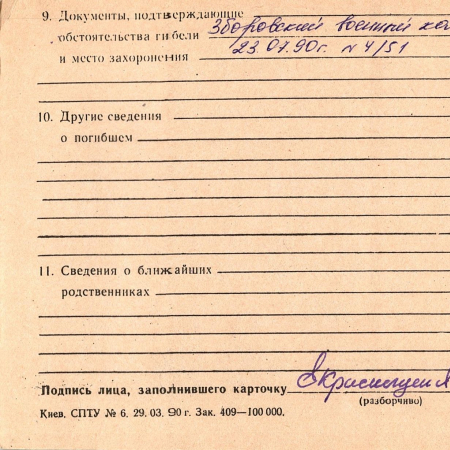 9. Документы, подтверждающие
обстоятельства гибели Зборовский военный
и место захоронения 23.07.90г. N 4/51
10. Другие сведения
о погибшем
11. Сведения о ближайших
родственниках
Подпись лица, заполнившего карточку
(разборчиво)
Киев. СПТУ № 6. 29. 03. 90 г. Зак. 409—100 000.